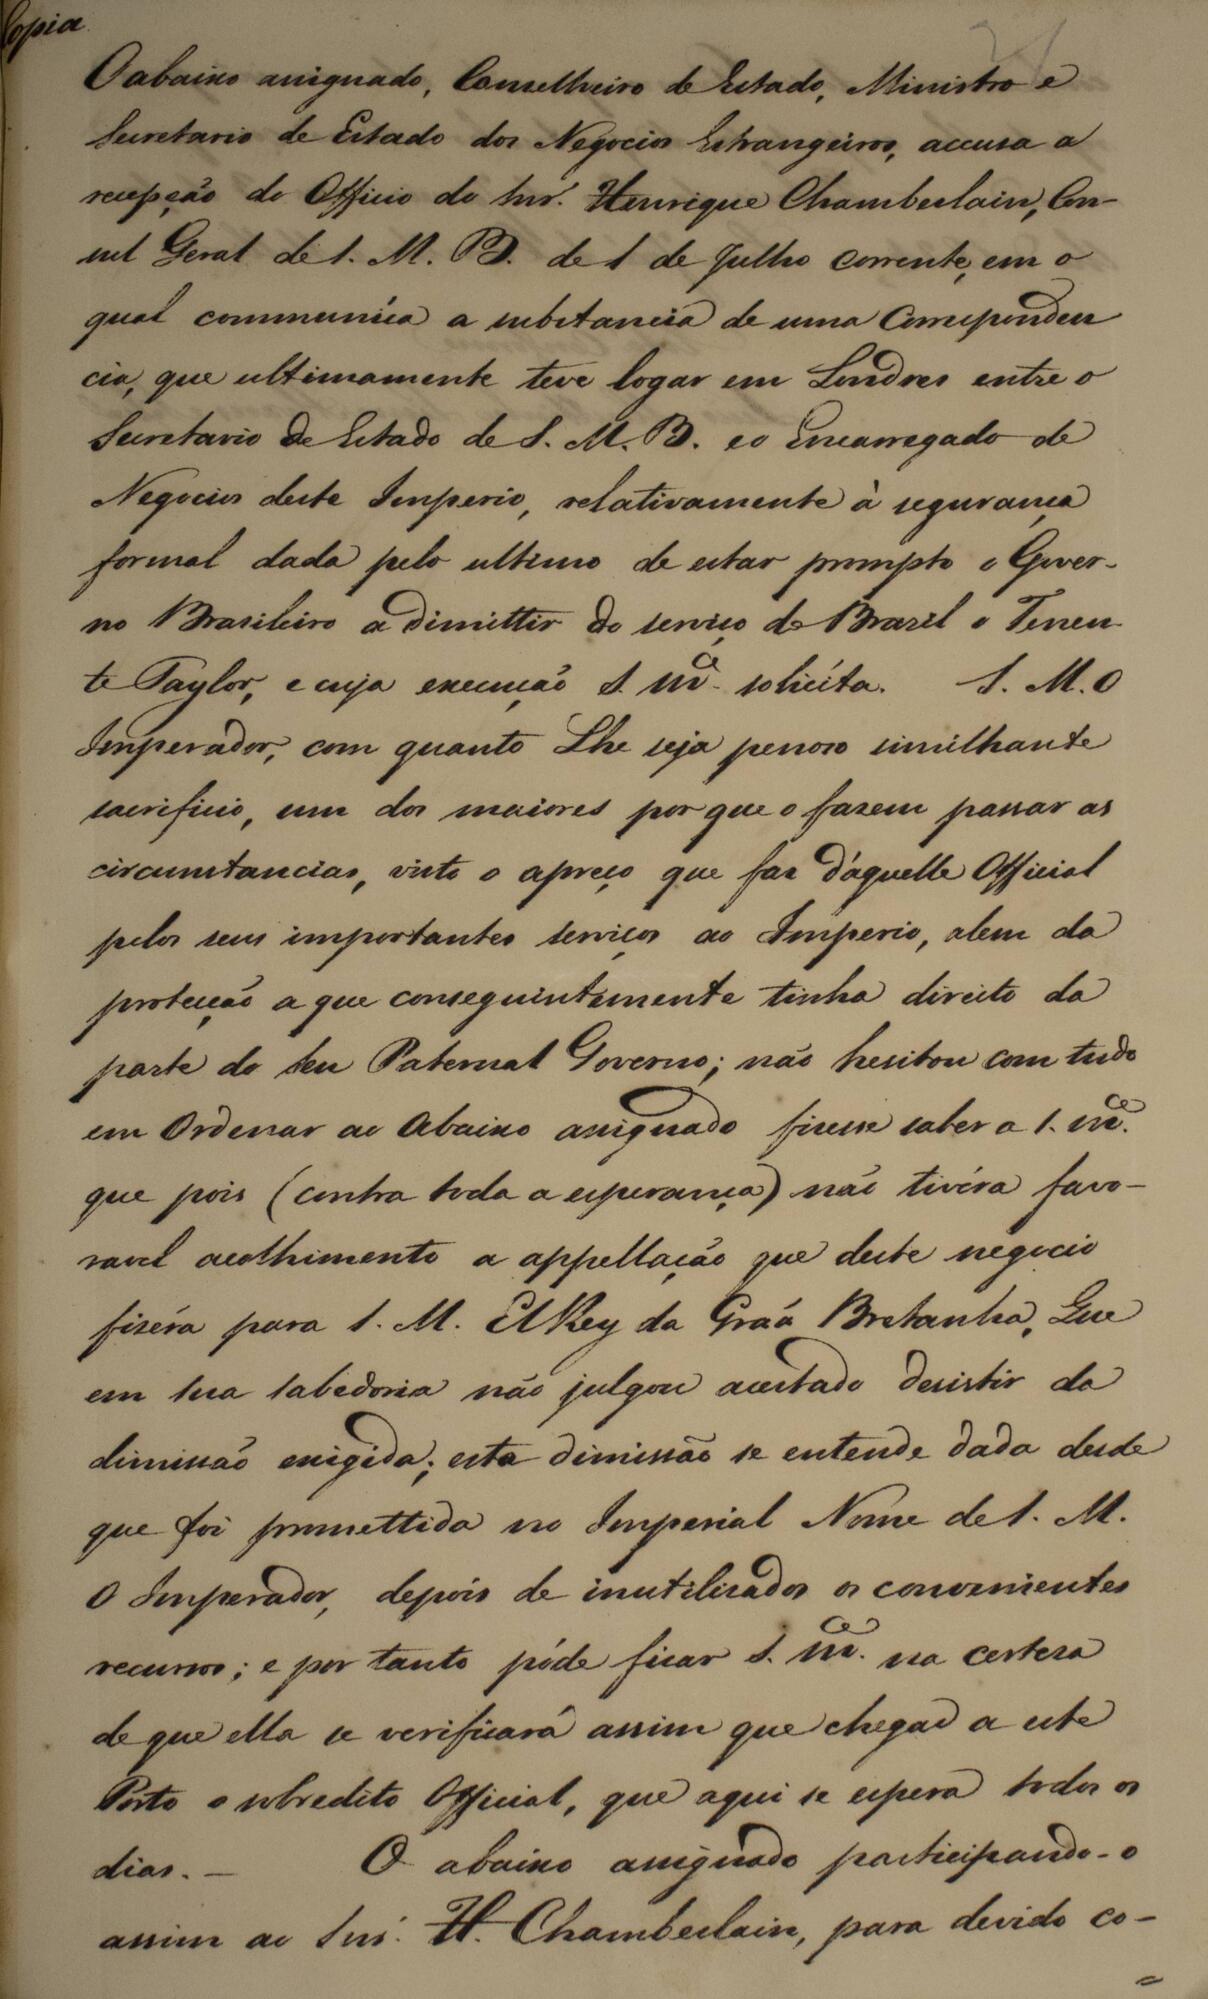 Copia
O abaixo assignado, Conselheiro de Estado, Ministro e
Secretario de Estado dos Negocios Estrangeiros, accusa a
recepção do Officio do Snr. Henrique Chamberlain, Con-
sul Geral de S. M. B. de 1 de Julho corrente, em o
qual communica a substancia de uma Corresponden
cia, que ultimamente teve logar em Londres entre o
Secretario de Estado de S. M. B. e o Encarregado de
Negocios deste Imperio, relativamente à segurança
formal dada pelo ultimo de estar prompto o Gover-
no Brasileiro a dimittir do serviço do Brazil o Tenen-
te Taylor, e cuja execução S. m.ce solicíta. S. M. O
Imperador, com quanto Lhe seja penoso similhante
sacrificio, um dos maiores por que o fazem passar as
circumstancias, visto o apreço que faz d'aquelle Official
pelos seus importantes serviços ao Imperio, alem da
protecção a que conseguintemente tinha direito da
parte do Seu Paternal Governo; não hesitou com tudo
em Ordenar ao Abaixo assignado fizesse saber a S. m.ce
que pois (contra toda a esperança) não tivéra favo-
ravel acolhimento a appellação que deste negocio
fizéra para S. M. ElRey da Graã Bretanha, Que
em sua sabedoria não julgou acertado desistir da
dimissão exigida; esta dimissão se entende dada desde
que foi promettida no Imperial Nome de S. M.
O Imperador, depois de inutilisados os convenientes
recursos; e por tanto póde ficar S. m.ce na certeza
de que ella se verificará assim que chegar a este
Porto o sobredito Official, que aqui se espera todos os
dias. — O abaixo assignado participando-o
assim ao Snr. H. Chamberlain, para devido co-
=